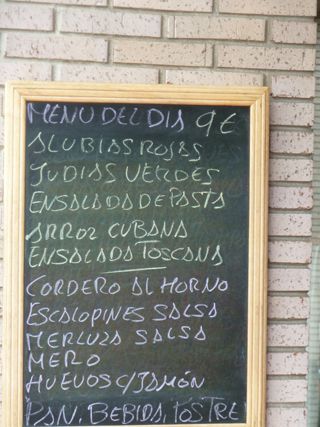 MENU DEL DIA 9€
ALUBIAS ROJAS
JUDIAS VERDES
ENSALADA DE PASTA
ARROZ CUBANA
ENSALADA TOSCANA
CORDERO AL HORNO
ESCALOPINES SALSA
MERLUZA SALSA
MERO
HUEVOS C/JAMÓN
PAN, BEBIDA, POSTRE